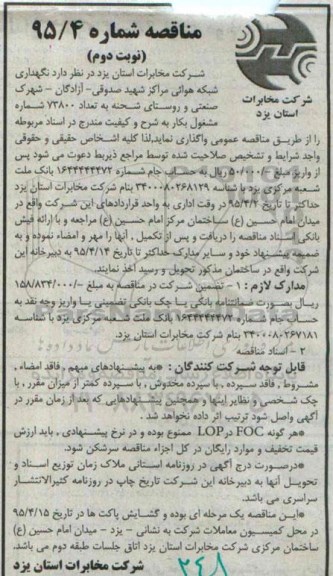 مناقصه شماره ۹۵/۴
(نوبت دوم)
شرکت مخابرات
استان یزد
شرکت مخابرات استان یزد در نظر دارد نگهداری
شبکه هوائی مراکز شهید صدوقی- آزادگان - شهرک
صنعتی و روستای شحنه به تعداد ۷۳۸۰۰ شماره
مشغول بکار به شرح و کیفیت مندرج در اسناد مربوطه
را از طریق مناقصه عمومی واگذاری نماید.لذا کلیه اشخاص حقیقی و حقوقی
واجد شرایط و تشخیص صلاحیت شده توسط مراجع ذیربط دعوت می شود پس
از واریز مبلغ ۵۰۰/۰۰۰/- ریال به حساب جام شماره ۱۶۴۴۴۴۴۴۷۲ بانک ملت
شعبه مرکزی یزد با شناسه ۳۴۰۰۰۸۰۲۶۸۱۲۹ بنام شرکت مخابرات استان یزد
حداکثر تا تاریخ ۹۵/۴/۲ در وقت اداری به واحد قراردادهای این شرکت واقع در
میدان امام حسین (ع) ساختمان مرکز امام حسین (ع) مراجعه و با ارائه فیش
بانکی اسناد مناقصه را دریافت و پس از تکمیل , آنها را مهر و امضاء نموده و به
ضمیمه پیشنهاد خود و سایر مدارک حداکثر تا تاریخ ۹۵/۴/۱۴ به دبیرخانه این
شرکت واقع در ساختمان مذکور تحویل و رسید اخذ نمایند.
مدارک لازم : ۱- تضمین شرکت در مناقصه به مبلغ ۱۵۸/۸۳۴/۰۰۰/-
ریال بصورت ضمانتنامه بانکی یا چک بانکی تضمینی یا واریز وجه نقد به
حساب جام شماره ۱۶۳۳۴۳۴۴۷۲ بانک ملت شعبه مرکزی یزد با شناسه
۳۴۰۰۰۸۰۲۶۷۱۸۱ بنام شرکت مخابرات استان یزد.
۲ - اسناد مناقصه
قابل توجه شرکت کنندگان : *به پیشنهادهای مبهم , فاقد امضاء ,
مشروط , فاقد سپرده , با سپرده مخدوش , با سپرده کمتر از میزان مقرر , با
چک شخصی و نظایر اینها و همچنین پیشنهادهایی که بعد از زمان مقرر در
آگهی واصل شود ترتیب اثر داده نخواهد شد .
*هر گونه FOC در LOP ممنوع بوده و در نرخ پیشنهادی , باید ارزش
قیمت تخفیف و موارد رایگان در کل اجزاء مناقصه سرشکن شود.
*درصورت درج آگهی در روزنامه استانی ملاک زمان توزیع اسناد و
تحویل آنها به دبیرخانه این شرکت تاریخ چاپ در روزنامه کثیرالانتشار
سراسری می باشد.
*این مناقصه یک مرحله ای بوده و گشایش پاکت ها در تاریخ ۹۵/۴/۱۵
در محل کمیسیون معاملات شرکت به نشانی - یزد - میدان امام حسین (ع)
ساختمان مرکزی شرکت مخابرات استان یزد اتاق جلسات طبقه دوم می باشد.
شرکت مخابرات استان یزد
۲۴۸